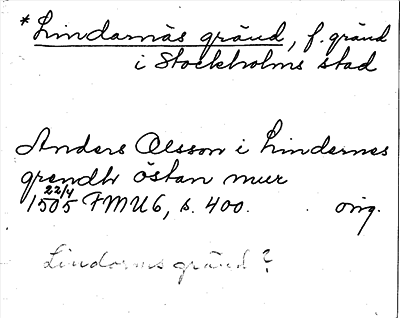 *Lindarnäs gränd, f. gränd
i Stockholms stad
Anders Olsson i Lindernes
grendh östan mur
22/4
1505 FMU6, s. 400. orig.
Lindornes gränd?